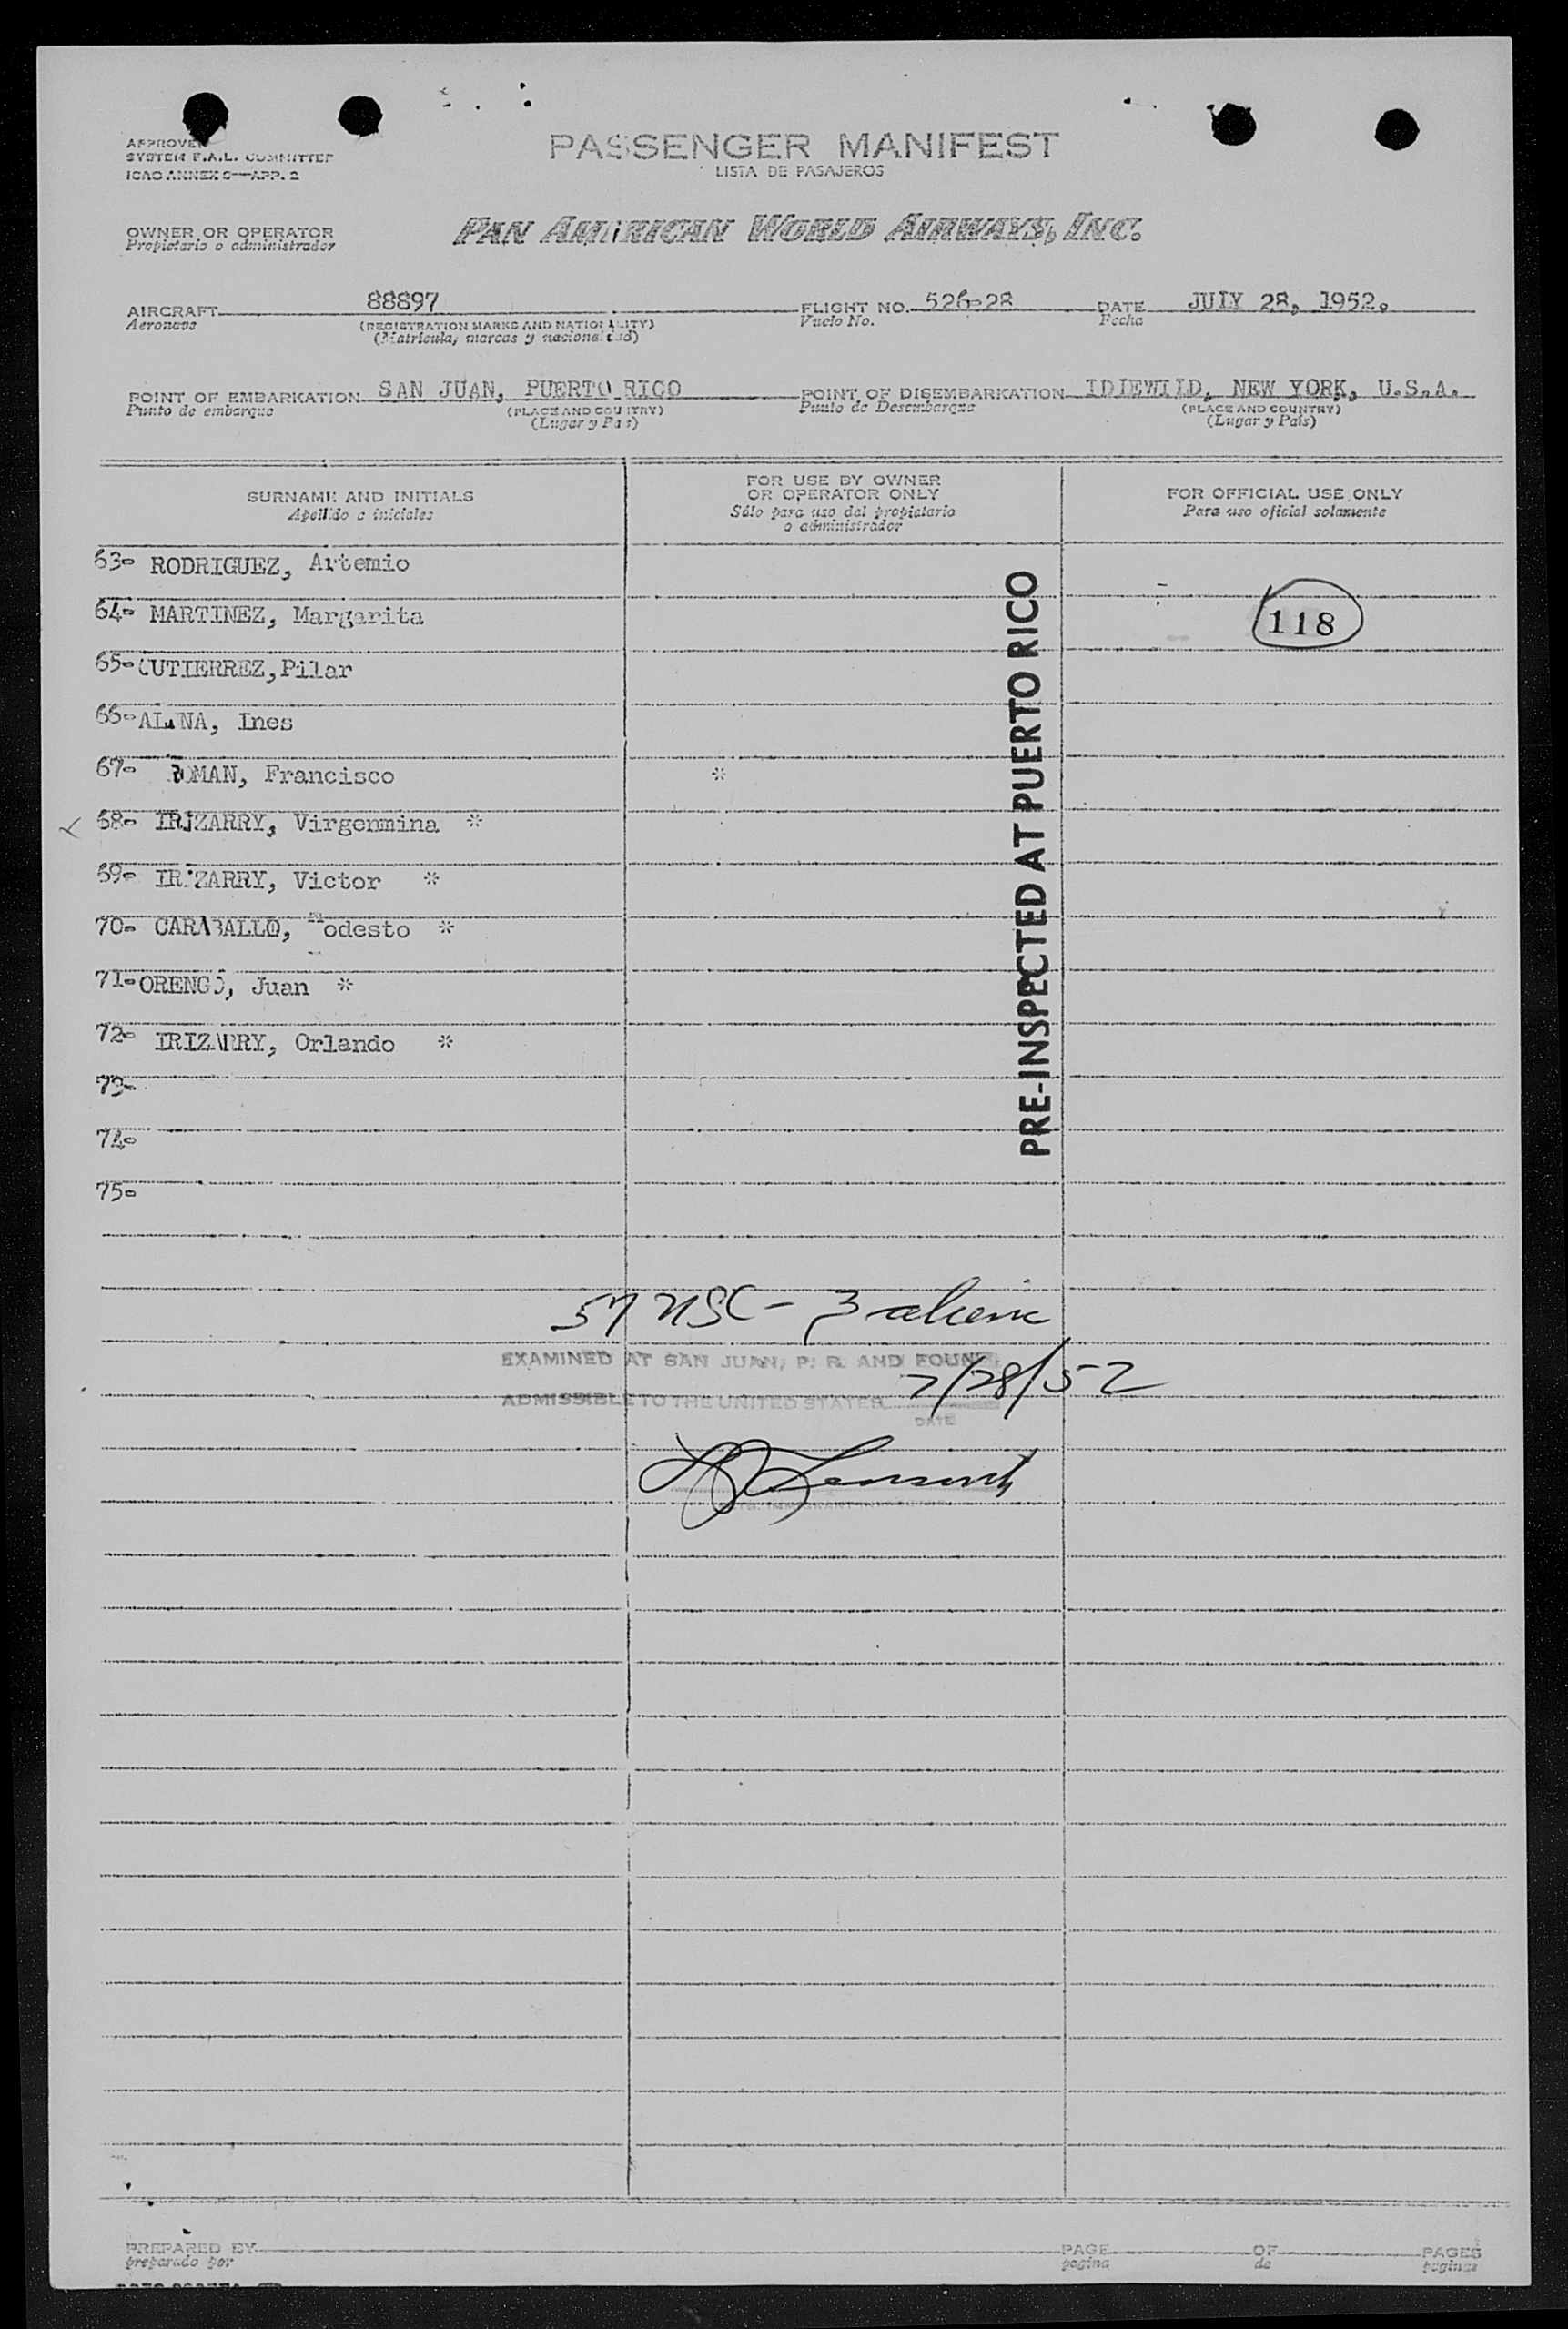 APPROVED
SYSTEM F.A.L. COMMITTEE
ICAO ANNEX 9—APP. 2
PASSENGER MANIFEST
LISTA DE PASAJEROS
OWNER OR OPERATOR
Propietario o administrador
PAN AMERICAN WORLD AIRWAYS, INC.
AIRCRAFT 88897 FLIGHT NO. 526-28 DATE JULY 28, 1952.
Aeronave (REGISTRATION MARKS AND NATIONALITY) Vuelo No. Fecha
(Matrícula, marcas y nacionalidad)
POINT OF EMBARKATION SAN JUAN, PUERTO RICO POINT OF DISEMBARKATION IDLEWILD, NEW YORK, U.S.A.
Punto de embarque (PLACE AND COUNTRY) Punto de Desembarque (PLACE AND COUNTRY)
(Lugar y País) (Lugar y País)
SURNAME AND INITIALS
Apellido e iniciales
FOR USE BY OWNER
OR OPERATOR ONLY
Sólo para uso del propietario
o administrador
FOR OFFICIAL USE ONLY
Para uso oficial solamente
63- RODRIGUEZ, Artemio
64- MARTINEZ, Margarita
118
65- GUTIERREZ, Pilar
66- Ines
67- ROMAN, Francisco *
68- IRIZARRY, Virgenmina *
69- IRIZARRY, Victor *
70- CARABALLO, Modesto *
71- ORENGO, Juan *
72- IRIZARRY, Orlando *
73-
74-
75-
PRE-INSPECTED AT PUERTO RICO
57 USC - 3 aliens
EXAMINED AT SAN JUAN, P. R. AND FOUND
ADMISSIBLE TO THE UNITED STATES 7/28/52
DATE
PREPARED BY PAGE OF PAGES
preparado por pagina de paginas